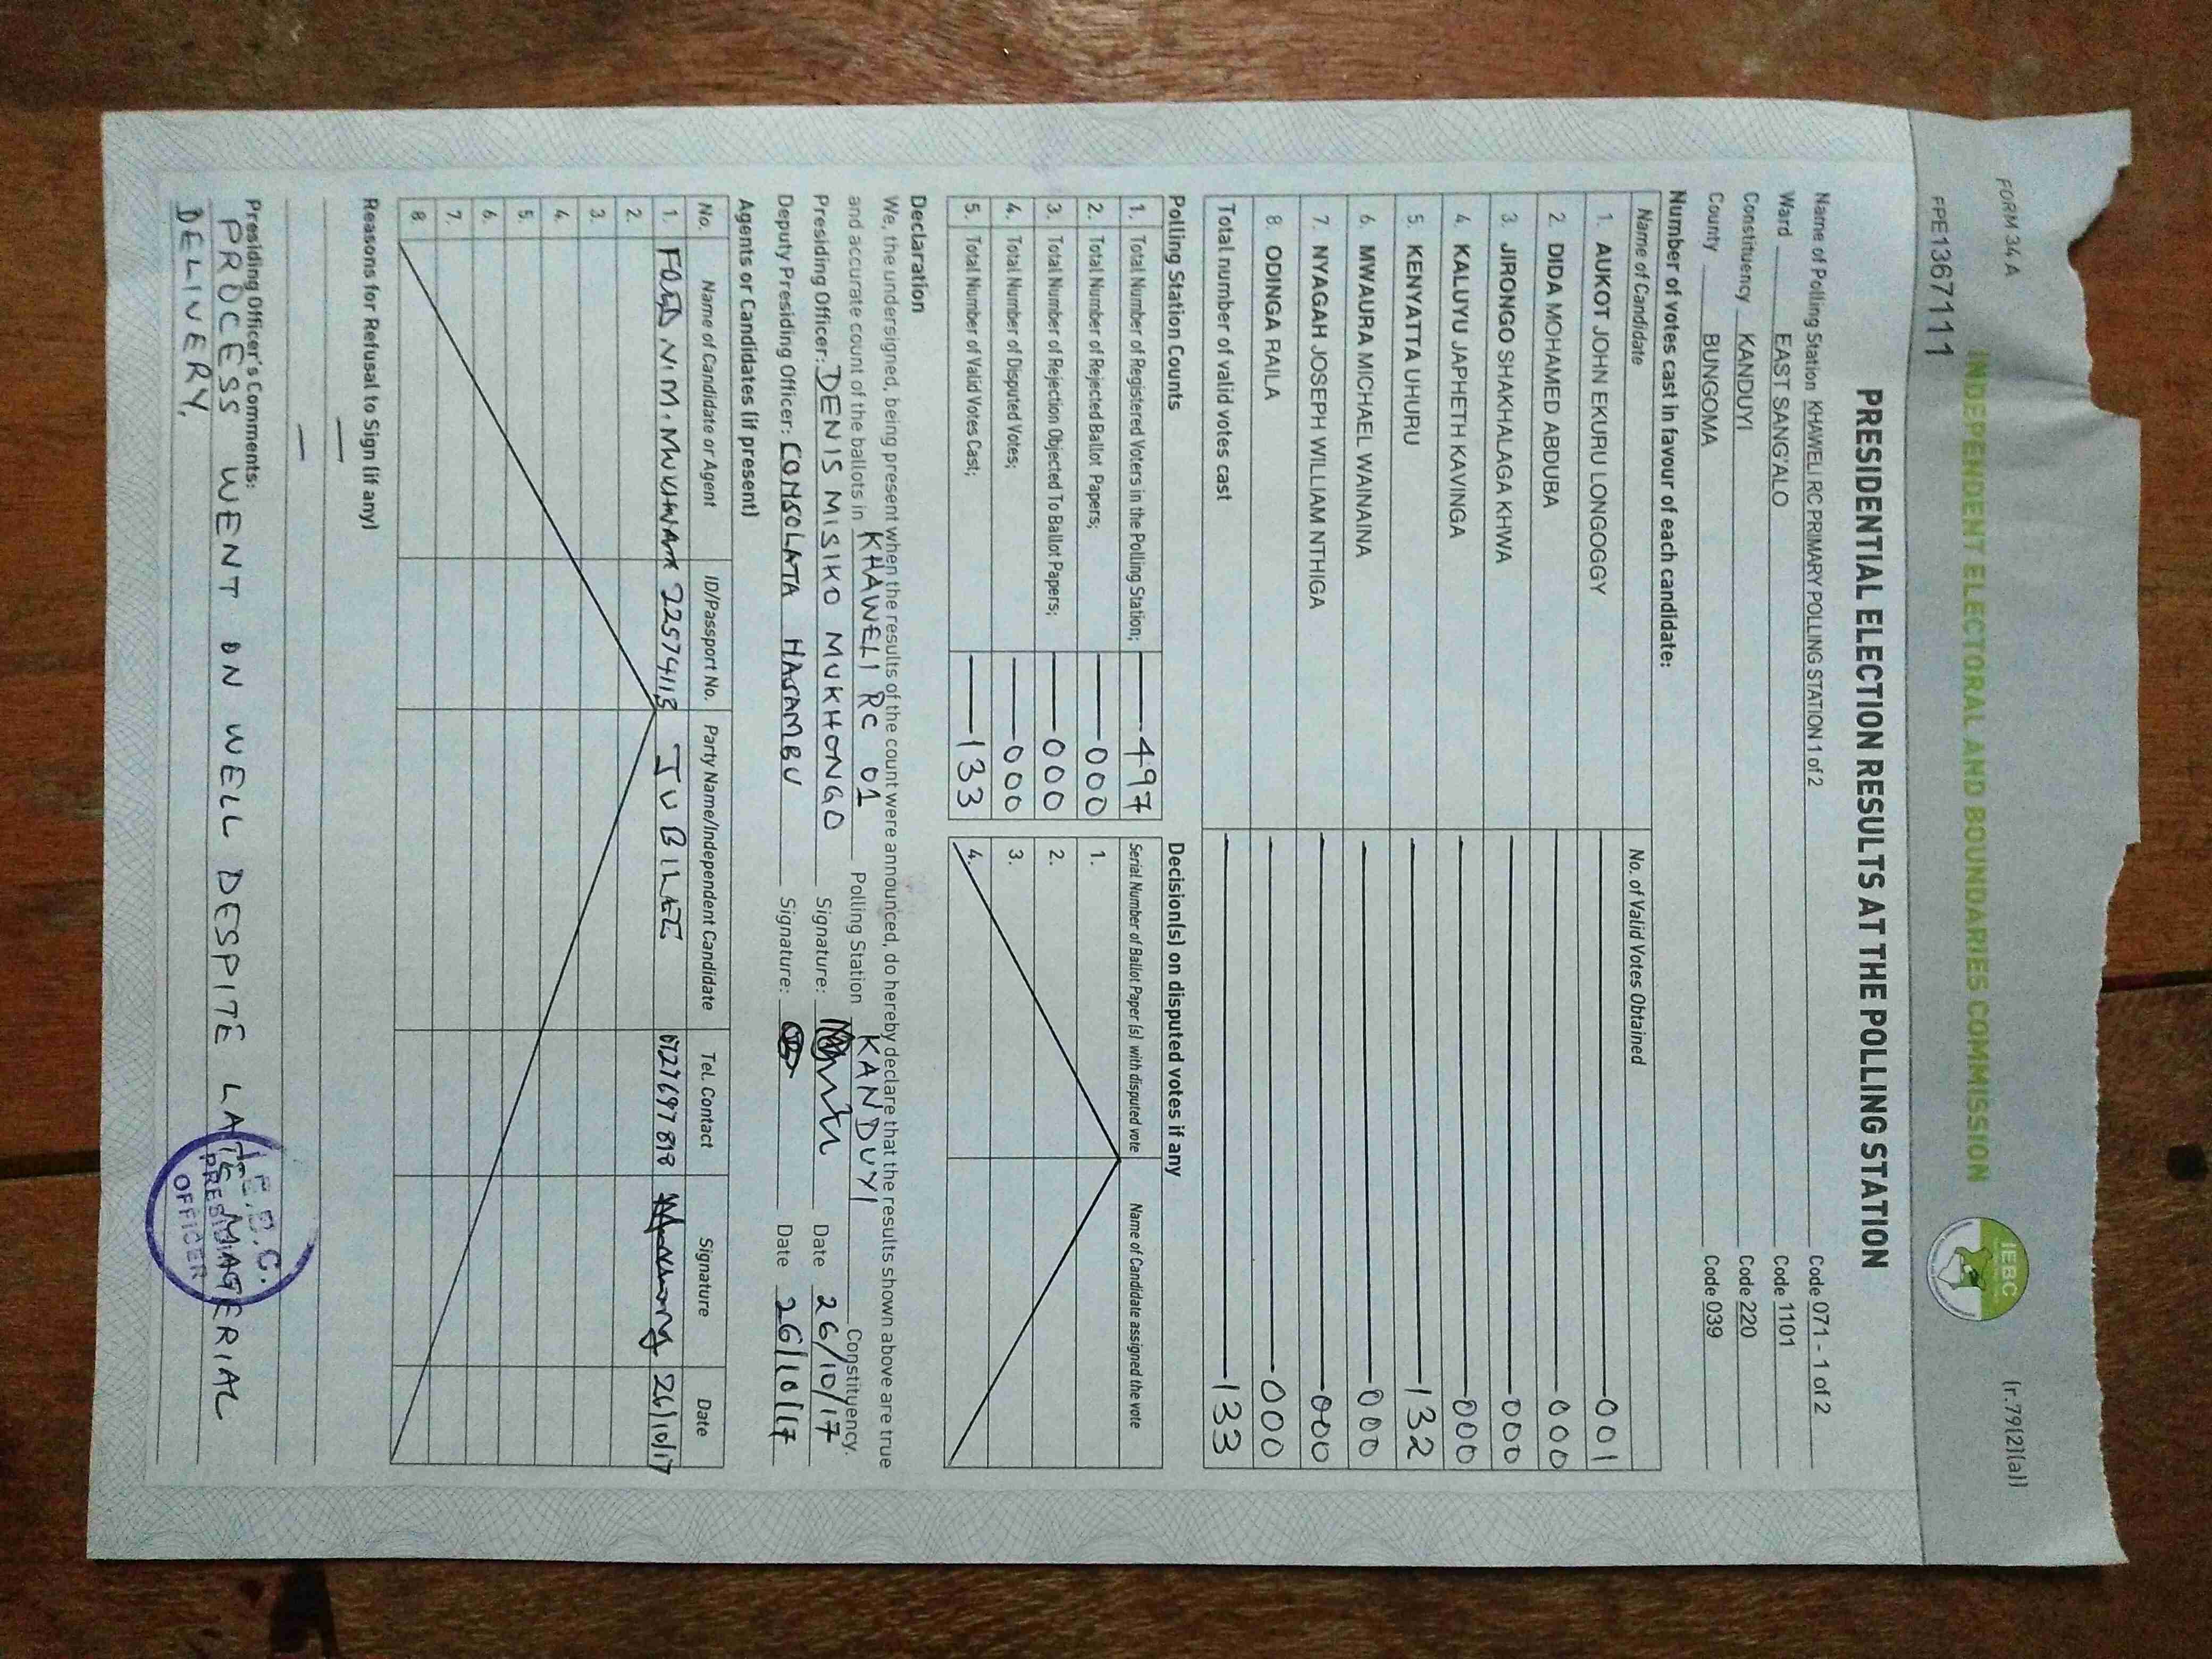 FORM 34 A
(r.79(2)(a))
INDEPENDENT ELECTORAL AND BOUNDARIES COMMISSION
IEBC
FPE1367111
PRESIDENTIAL ELECTION RESULTS AT THE POLLING STATION
Name of Polling Station KHAWELI RC PRIMARY POLLING STATION 1 of 2 Code 071 - 1 of 2
Ward EAST SANG'ALO Code 1101
Constituency KANDUYI Code 220
County BUNGOMA Code 039
Number of votes cast in favour of each candidate:
Name of Candidate No. of Valid Votes Obtained
1. AUKOT JOHN EKURU LONGOGGY 001
2. DIDA MOHAMED ABDUBA 000
3. JIRONGO SHAKHALAGA KHWA 000
4. KALUYU JAPHETH KAVINGA 000
5. KENYATTA UHURU 132
6. MWAURA MICHAEL WAINAINA 000
7. NYAGAH JOSEPH WILLIAM NTHIGA 000
8. ODINGA RAILA 000
Total number of valid votes cast 133
Polling Station Counts
1. Total Number of Registered Voters in the Polling Station; 497
2. Total Number of Rejected Ballot Papers; 000
3. Total Number of Rejection Objected To Ballot Papers; 000
4. Total Number of Disputed Votes; 000
5. Total Number of Valid Votes Cast; 133
Decision(s) on disputed votes if any
Serial Number of Ballot Paper (s) with disputed vote Name of Candidate assigned the vote
1.
2.
3.
4.
Declaration
We, the undersigned, being present when the results of the count were announced, do hereby declare that the results shown above are true
and accurate count of the ballots in KHAWELI RC 01 Polling Station KANDUYI Constituency.
Presiding Officer: DENIS MISIKO MUKHONGO Signature: Date 26/10/17
Deputy Presiding Officer: CONSOLATA HASAMBU Signature: Date 26/10/17
Agents or Candidates (if present)
No. Name of Candidate or Agent ID/Passport No. Party Name/Independent Candidate Tel. Contact Signature Date
1. JUBILEE 26/10/17
2.
3.
4.
5.
6.
7.
8.
Reasons for Refusal to Sign (if any)
Presiding Officer's Comments:
PROCESS WENT ON WELL DESPITE LATE MATERIAL
DELIVERY.
I.E.B.C.
PRESIDING
OFFICER